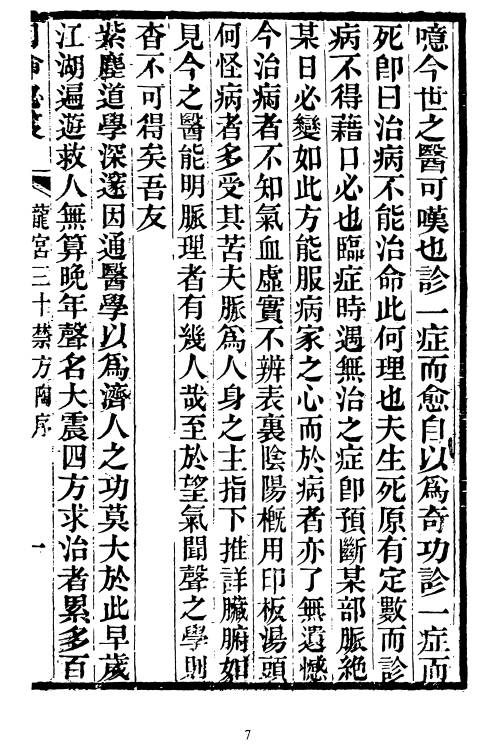 噫今世之醫可嘆也診一症而愈自以爲奇功診一症而
死卽曰治病不能治命此何理也夫生死原有定數而診
病不得藉口必也臨症時遇無治之症卽預斷某部脈絶
某日必變如此方能服病家之心而於病者亦了無遺憾
今治病者不知氣血虛實不辨表裏陰陽槪用印板湯頭
何怪病者多受其苦夫脈爲人身之主指下推詳臟腑如
見今之醫能明脈理者有幾人哉至於望氣聞聲之學則
杳不可得矣吾友
紫塵道學深邃因通醫學以爲濟人之功莫大於此早歲
江湖遍遊救人無算晚年聲名大震四方求治者累多百
龍宮三十禁方陶序
一
7